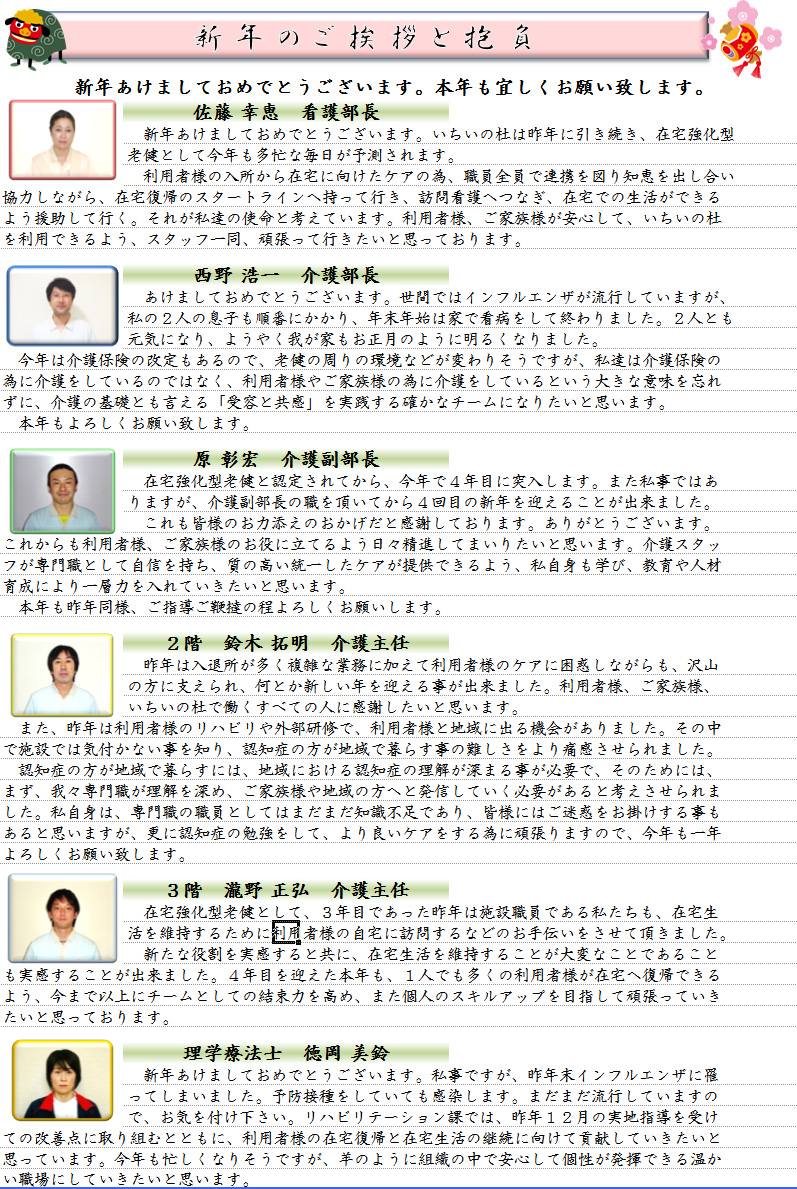 新年のご挨拶と抱負
新年あけましておめでとうございます。本年も宜しくお願い致します。
佐藤 幸恵　看護部長
新年あけましておめでとうございます。いちいの杜は昨年に引き続き、在宅強化型
老健として今年も多忙な毎日が予測されます。
利用者様の入所から在宅に向けたケアの為、職員全員で連携を図り知恵を出し合い
協力しながら、在宅復帰のスタートラインへ持って行き、訪問看護へつなぎ、在宅での生活ができる
よう援助して行く。それが私達の使命と考えています。利用者様、ご家族様が安心して、いちいの杜
を利用できるよう、スタッフ一同、頑張って行きたいと思っております。
西野 浩一　介護部長
あけましておめでとうございます。世間ではインフルエンザが流行していますが、
私の２人の息子も順番にかかり、年末年始は家で看病をして終わりました。２人とも
元気になり、ようやく我が家もお正月のように明るくなりました。
今年は介護保険の改定もあるので、老健の周りの環境などが変わりそうですが、私達は介護保険の
為に介護をしているのではなく、利用者様やご家族様の為に介護をしているという大きな意味を忘れ
ずに、介護の基礎とも言える「受容と共感」を実践する確かなチームになりたいと思います。
本年もよろしくお願い致します。
原 彰宏　介護副部長
在宅強化型老健と認定されてから、今年で４年目に突入します。また私事ではあ
りますが、介護副部長の職を頂いてから４回目の新年を迎えることが出来ました。
これも皆様のお力添えのおかげだと感謝しております。ありがとうございます。
これからも利用者様、ご家族様のお役に立てるよう日々精進してまいりたいと思います。介護スタッ
フが専門職として自信を持ち、質の高い統一したケアが提供できるよう、私自身も学び、教育や人材
育成により一層力を入れていきたいと思います。
本年も昨年同様、ご指導ご鞭撻の程よろしくお願いします。
２階　鈴木 拓明　介護主任
昨年は入退所が多く複雑な業務に加えて利用者様のケアに困惑しながらも、沢山
の方に支えられ、何とか新しい年を迎える事が出来ました。利用者様、ご家族様、
いちいの杜で働くすべての人に感謝したいと思います。
また、昨年は利用者様のリハビリや外部研修で、利用者様と地域に出る機会がありました。その中
で施設では気付かない事を知り、認知症の方が地域で暮らす事の難しさをより痛感させられました。
認知症の方が地域で暮らすには、地域における認知症の理解が深まる事が必要で、そのためには、
まず、我々専門職が理解を深め、ご家族様や地域の方へと発信していく必要があると考えさせられま
した。私自身は、専門職の職員としてはまだまだ知識不足であり、皆様にはご迷惑をお掛けする事も
あると思いますが、更に認知症の勉強をして、より良いケアをする為に頑張りますので、今年も一年
よろしくお願い致します。
３階　瀧野 正弘　介護主任
在宅強化型老健として、３年目であった昨年は施設職員である私たちも、在宅生
活を維持するために利用者様の自宅に訪問するなどのお手伝いをさせて頂きました。
新たな役割を実感すると共に、在宅生活を維持することが大変なことであること
も実感することが出来ました。４年目を迎えた本年も、１人でも多くの利用者様が在宅へ復帰できる
よう、今まで以上にチームとしての結束力を高め、また個人のスキルアップを目指して頑張っていき
たいと思っております。
理学療法士　徳岡 美鈴
新年あけましておめでとうございます。私事ですが、昨年末インフルエンザに罹
ってしまいました。予防接種をしていても感染します。まだまだ流行していますの
で、お気を付け下さい。リハビリテーション課では、昨年１２月の実地指導を受け
ての改善点に取り組むとともに、利用者様の在宅復帰と在宅生活の継続に向けて貢献していきたいと
思っています。今年も忙しくなりそうですが、羊のように組織の中で安心して個性が発揮できる温か
い職場にしていきたいと思います。